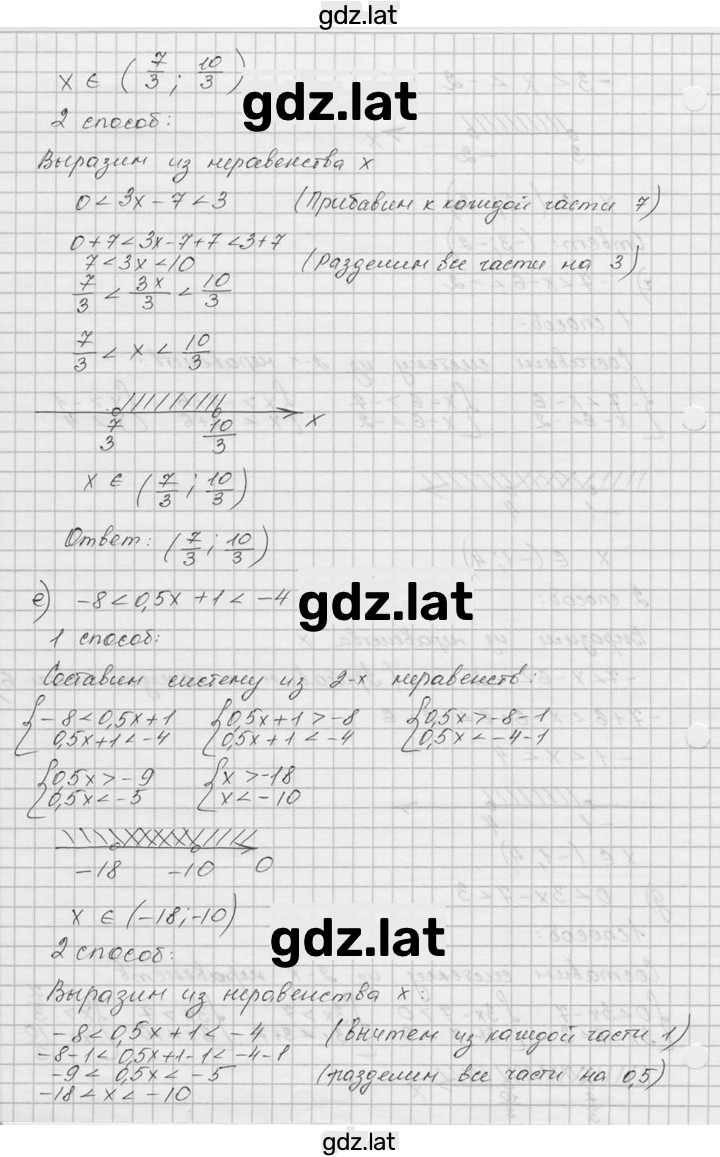 gdz.lat
x ∈ (7/3; 10/3)
gdz.lat
2 способ:
Выразим из неравенства x
0<3x-7<3 (Прибавим к каждой части 7)
0+7<3x-7+7<3+7
7<3x<10 (разделим все части на 3)
7/3 < 3x/3 < 10/3
7/3 < x < 10/3
7/3 10/3 x
x ∈ (7/3; 10/3)
Ответ: (7/3; 10/3)
е) -8<0,5x+1<-4
gdz.lat
1 способ:
Составим систему из 2-х неравенств:
{-8<0,5x+1 {0,5x+1>-8 {0,5x>-8-1
0,5x+1<-4 0,5x+1<-4 0,5x<-4-1
{0,5x>-9 {x>-18
0,5x<-5 x<-10
-18 -10 0
x ∈ (-18;-10)
gdz.lat
2 способ:
Выразим из неравенства x:
-8<0,5x+1<-4 (вычтем из каждой части 1)
-8-1<0,5x+1-1<-4-1
-9<0,5x<-5 (разделим все части на 0,5)
-18<x<-10
gdz.lat